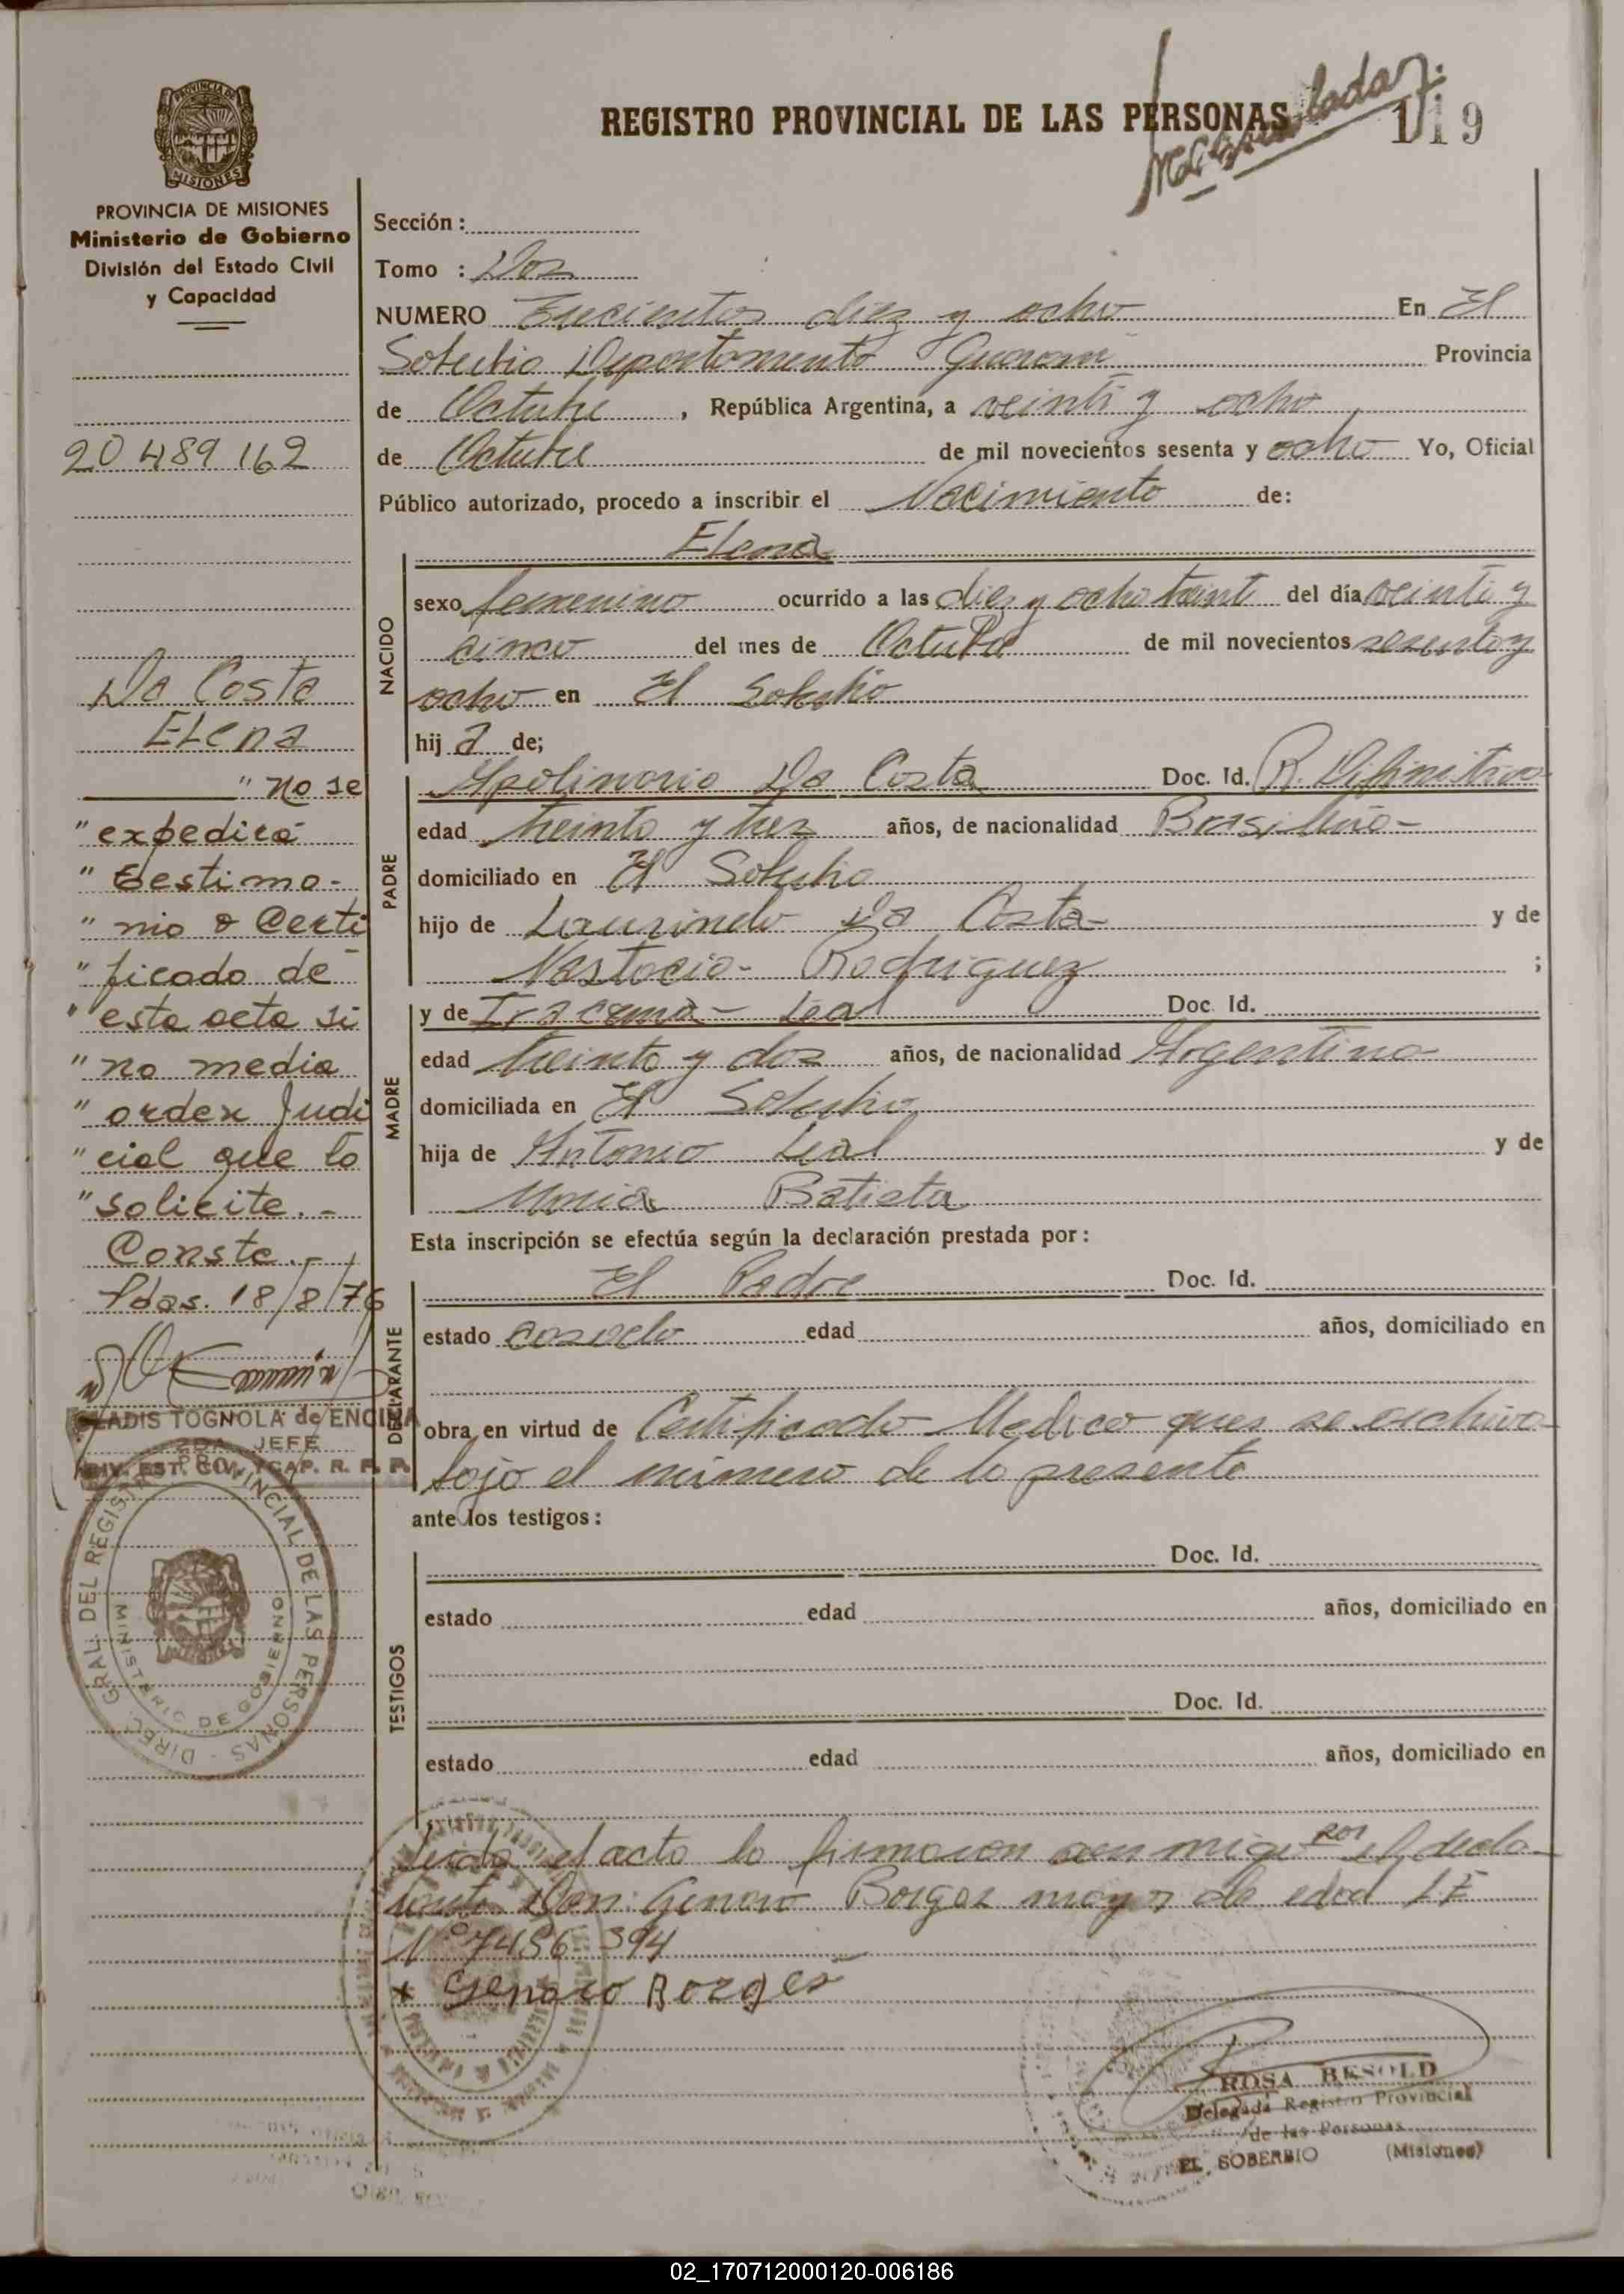 REGISTRO PROVINCIAL DE LAS PERSONAS
119
PROVINCIA DE
MISIONES
PROVINCIA DE MISIONES
Ministerio de Gobierno
División del Estado Civil
y Capacidad
20 489 162
Da Costa
Elena
" no se
" expedirá
" testimo-
" nio o Certi
" ficado de
" esta acta si
" no media
" orden Judi
" cial que lo
" solicite. -
Conste. -
Pdas. 18/8/76
GLADIS TOGNOLA de ENCINA
2DA. JEFE
DIV. EST. CIV. Y CAP. R. P. P.
DIREC. GRAL. DEL REGISTRO PROVINCIAL DE LAS PERSONAS
MINISTERIO DE GOBIERNO
Sección :
Tomo : Dos
NUMERO Trecientos diez y ocho En El
Soberbio Departamento Guarani Provincia
de Octubre , República Argentina, a veinti y ocho
de Octubre de mil novecientos sesenta y ocho Yo, Oficial
Público autorizado, procedo a inscribir el Nacimiento de:
NACIDO
Elena
sexo femenino ocurrido a las diez y ocho treint del día veinti y
cinco del mes de Octubre de mil novecientos sesenta y
ocho en El Soberbio
hij a de;
PADRE
Apolinario Da Costa Doc. Id. R. Difinitivo
edad treinta y tres años, de nacionalidad Brasileño -
domiciliado en El Soberbio
hijo de Laurindo Da Costa - y de
Nastacia - Rodriguez ;
MADRE
y de Iracema - Leal Doc. Id.
edad treinta y dos años, de nacionalidad Argentina
domiciliada en El Soberbio
hija de Antonio Leal y de
Maria Batista
Esta inscripción se efectúa según la declaración prestada por :
DECLARANTE
El Padre Doc. Id.
estado casado edad años, domiciliado en
obra en virtud de Certificado Medico ques se archiva
bajo el número de la presente
ante los testigos :
TESTIGOS
Doc. Id.
estado edad años, domiciliado en
Doc. Id.
estado edad años, domiciliado en
Leida el acta la firmaron con migo por el decla-
rante Don: Genaro Borges mayor de edad LE
N° 7456 394
x Genaro Borges
ROSA BESOLD
Delegada Registro Provincial
de las Personas
EL SOBERBIO (Misiones)
02_170712000120-006186